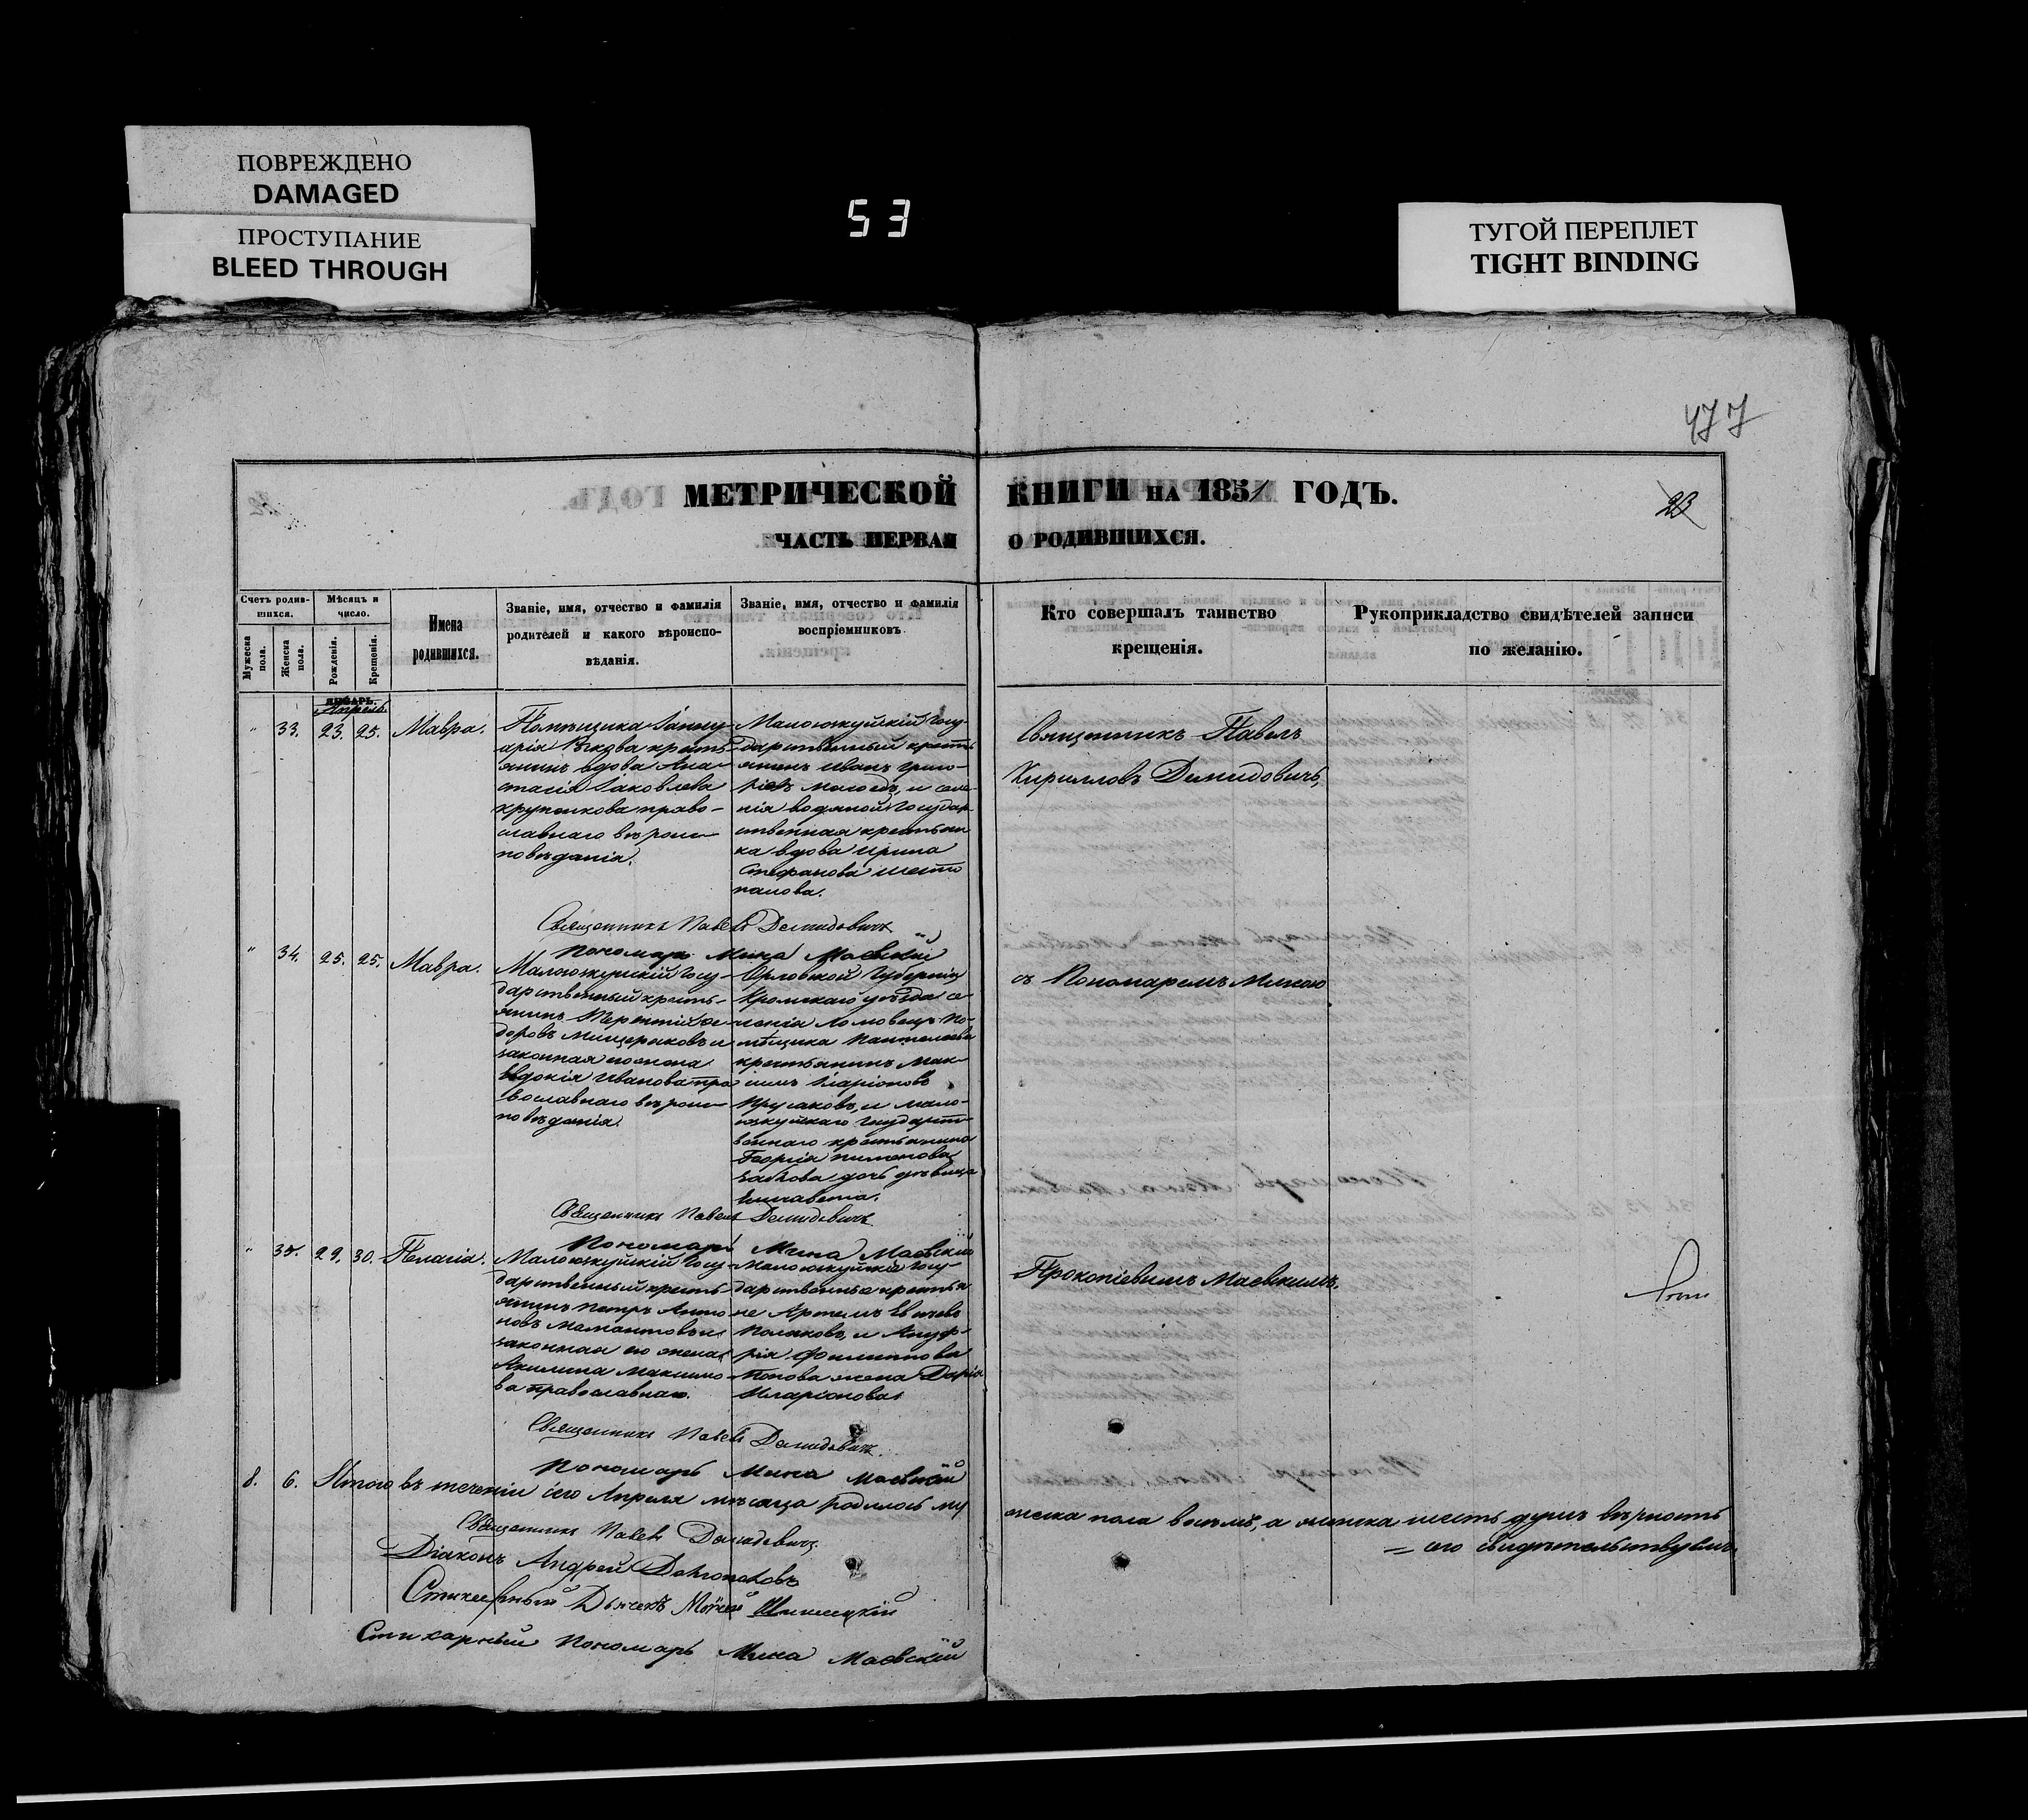 ПОВРЕЖДЕНО
DAMAGED
ПРОСТУПАНИЕ
BLEED THROUGH
53
ТУГОЙ ПЕРЕПЛЕТ
TIGHT BINDING
477
МЕТРИЧЕСКОЙ КНИГИ НА 1851 ГОДЪ.
23
ЧАСТЬ ПЕРВАЯ О РОДИВШИХСЯ.
Счетъ родив-
шихся.
Мужеска
пола.
Женска
пола.
Мѣсяцъ и
число.
Рожденія.
Крещенія.
Имена
родившихся.
Званіе, имя, отчество и фамилія
родителей и какого вѣроиспо-
вѣданія.
Званіе, имя, отчество и фамилія
воспріемниковъ.
Кто совершалъ таинство
крещенія.
Рукоприкладство свидѣтелей записи
по желанію.
ЯНВАРЬ.
Апрель.
" 33. 23. 25. Мавра.
Помѣщика
крестъ-
янинъ вдова Ана-
стасія Іаковлева
право-
славнаго вѣроис-
повѣданія.
Госу-
дарственный крестъ
янинъ Иванъ Григо-
и селе-
нія водяной Государ-
ственная крестьян
ка вдова Ирина
Стефанова Шесто
палова.
Священникъ Павелъ
Кирилловъ Демидовичъ,
Священникъ Павелъ Демидовичъ
Пономарь Мина Маевскій
" 34. 25. 25. Мавра.
Госу-
дарственный кресть-
янинъ Терентій Ѳе-
доровъ Мищеряковъ и
законная его жена
Евдокія Иванова пра
вославнаго вѣроис-
повѣданія.
Орловской Губерніи
Кромскаго уѣзда се
ленія Ломовецъ По-
мѣщика
крестьянинъ Мак-
симъ Иларіоновъ
и мало-
Государст-
веннаго крестьянина
Георгія Пименова
дочь дѣвица
Елисавета.
съ Пономаремъ Миною
Священникъ Павелъ Демидовичъ
Пономарь Мина Маевскій
" 35. 29. 30. Пелагія.
Госу-
дарственный кресть-
янинъ Петръ Анто
новъ Мамонтовъ и
законная его жена
Акилина Максимо
ва православнаго.
Госу-
дарственные крестья
не Артемъ
Поляковъ, и
Филиппова
Попова жена Дарія
Иларіонова
Прокопіевимъ Маевскимъ.
Священникъ Павелъ Демидовичъ.
Пономарь Мина Маевскій
8. 6. Итого въ теченіи сего Апреля мѣсяца родилось му
жеска пола восемь, а женска шесть душъ вѣрность
= сего свидѣтельствуемъ.
Священникъ Павелъ Демидовичъ
Діаконъ Андрей
Стихарный Дьячекъ
Стихарный Пономарь Мина Маевскій